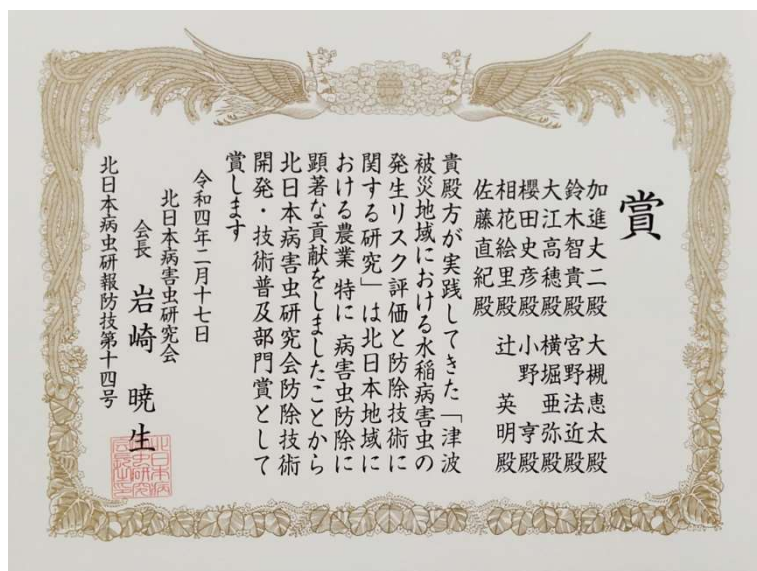 賞
加進丈二殿 大槻恵太殿
鈴木智貴殿 宮野法近殿
大江高穂殿 横堀亜弥殿
櫻田史彦殿 小野 亨殿
相花絵里殿 辻 英明殿
佐藤直紀殿
貴殿方が実践してきた「津波
被災地域における水稲病害虫の
発生リスク評価と防除技術に
関する研究」は北日本地域に
おける農業 特に 病害虫防除に
顕著な貢献をしましたことから
北日本病害虫研究会防除技術
開発・技術普及部門賞として
賞します
令和四年二月十七日
北日本病害虫研究会
会長 岩崎 暁生
北日本病虫研報防技第十四号